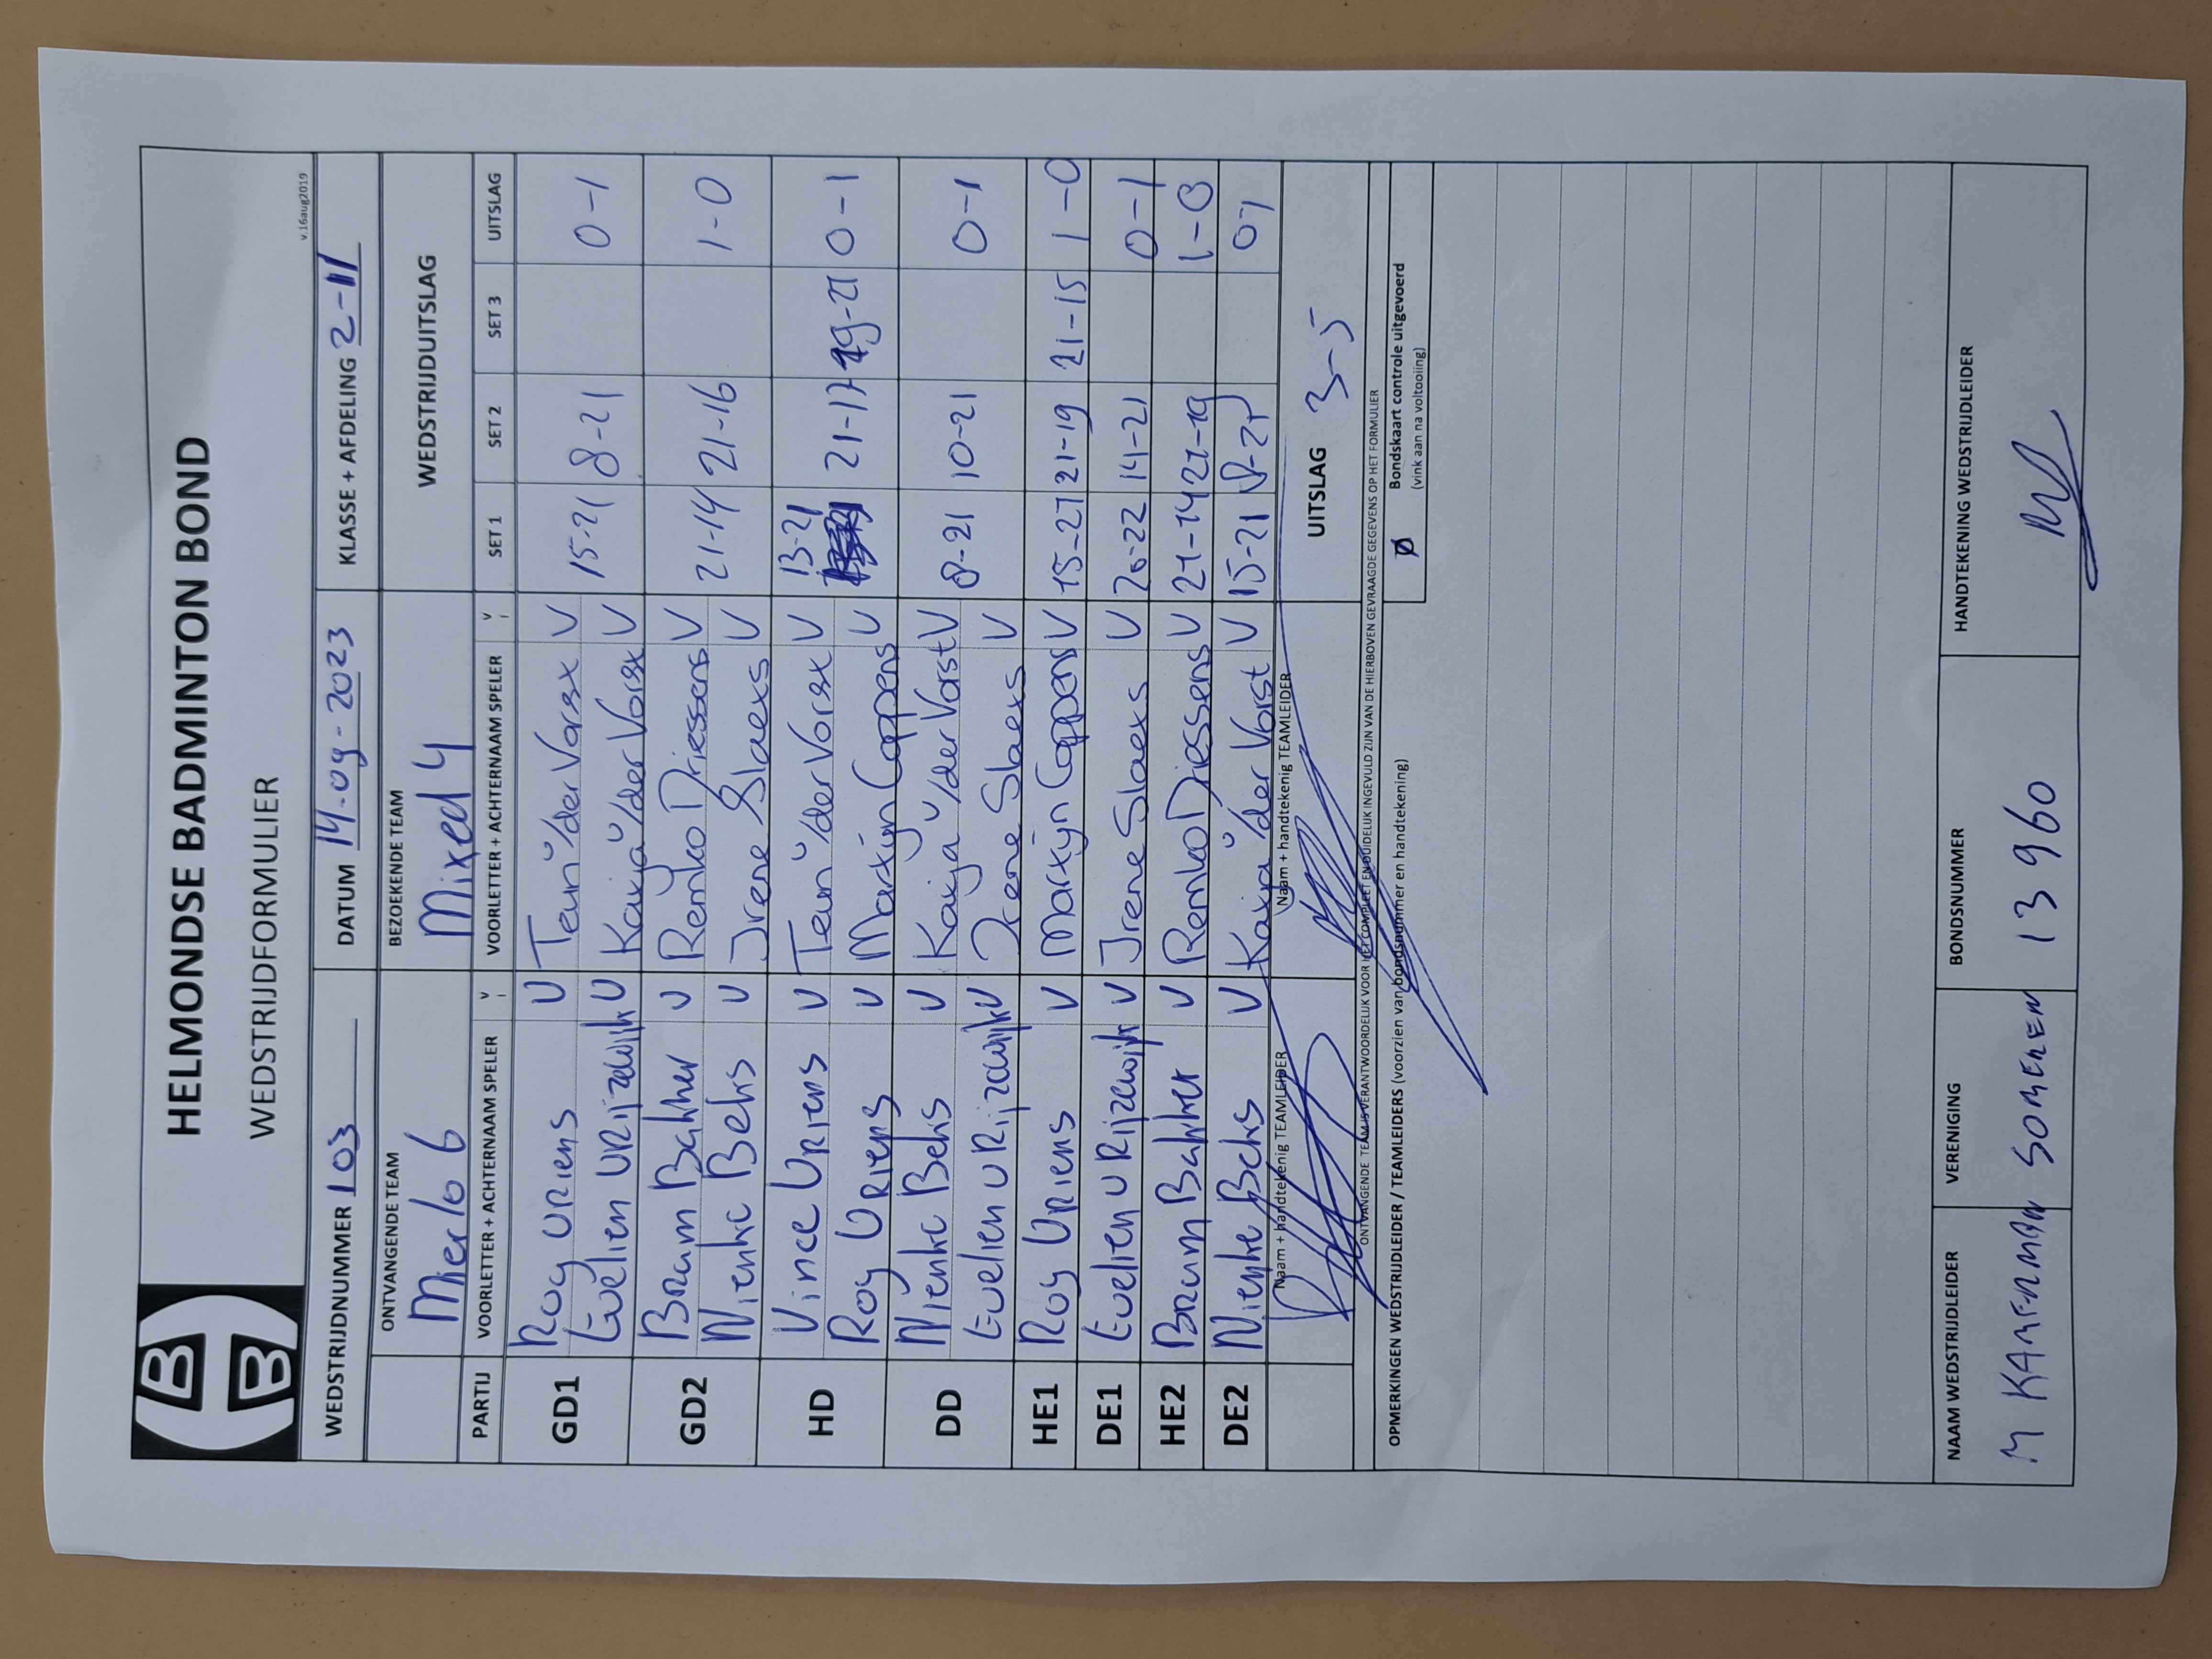 HELMONDSE BADMINTON BOND
WEDSTRIJDFORMULIER
v.16aug2019
WEDSTRIJDNUMMER 103 DATUM 14-09-2023 KLASSE + AFDELING 2-11
ONTVANGENDE TEAM BEZOEKENDE TEAM WEDSTRIJDUITSLAG
Mierlo 6 Mixed 4
PARTIJ VOORLETTER + ACHTERNAAM SPELER V VOORLETTER + ACHTERNAAM SPELER V SET 1 SET 2 SET 3 UITSLAG
GD1 Roy Vriens V Teun v/der Vorst V 15-21 8-21 0-1
Evelien Vrijzewijk V Kaxja v/der Vorst V
GD2 Bram Bakker V Remko Driessens V 21-14 21-16 1-0
Nienke Beks V Irene Slaets V
HD Vince Vriens V Teun v/der Vorst V 13-21 21-17 19-21 0-1
Roy Vriens V Martijn Coppens V
DD Nienke Beks V Katja v/der Vorst V 8-21 10-21 0-1
Evelien Vrijzewijk V Irene Slaets V
HE1 Roy Vriens V Martijn Coppens V 15-21 21-19 21-15 1-0
DE1 Evelien Vrijzewijk V Irene Slaets V 20-22 14-21 0-1
HE2 Bram Bakker V Remko Driessens V 21-14 21-19 1-0
DE2 Nienke Beks V Katja v/der Vorst V 15-21 18-21 0-1
Naam + handtekenig TEAMLEIDER Naam + handtekenig TEAMLEIDER UITSLAG 3-5
ONTVANGENDE TEAM IS VERANTWOORDELIJK VOOR HET COMPLEET EN DUIDELIJK INGEVULD ZIJN VAN DE HIERBOVEN GEVRAAGDE GEGEVENS OP HET FORMULIER
OPMERKINGEN WEDSTRIJDLEIDER / TEAMLEIDERS (voorzien van bondsnummer en handtekening) Bondskaart controle uitgevoerd
(vink aan na voltooiing)
NAAM WEDSTRIJDLEIDER VERENIGING BONDSNUMMER HANDTEKENING WEDSTRIJDLEIDER
M KAMERMAN SOMEREN 13960